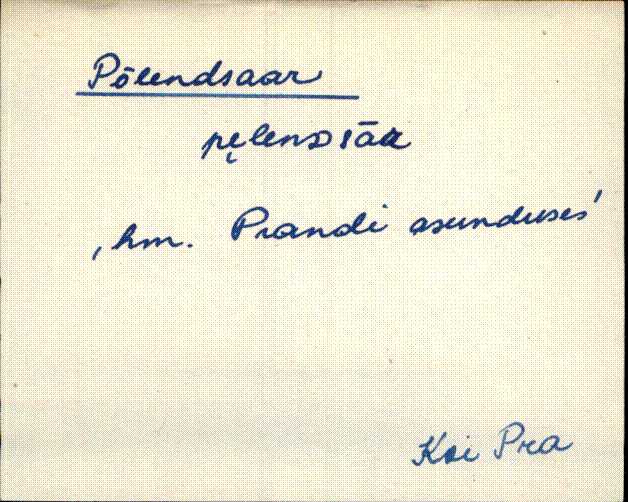 Põlendsaar
pe̮lenᴅsāɐ
‚hm. Prandi asunduses’
Koi Pra